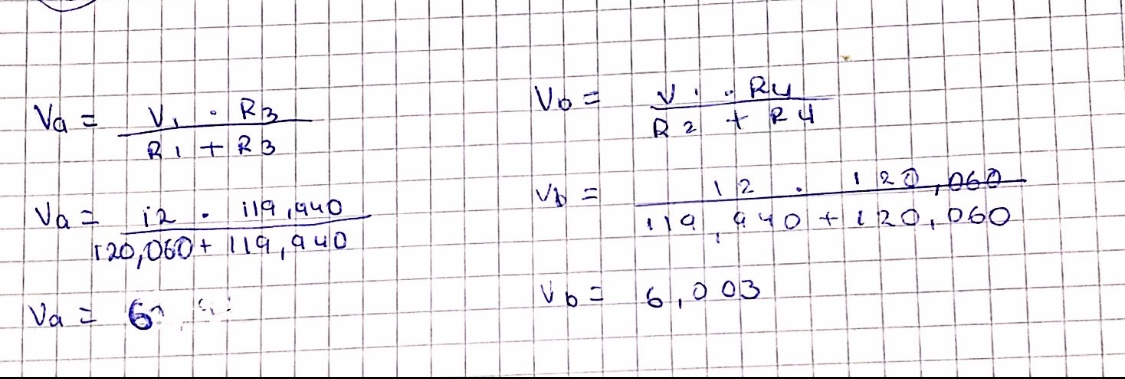 Va = V1 . R3
R1 + R3
Va = 12 . 119,940
120,060 + 119,940
Va = 6
Vb = V1 . R4
R2 + R4
Vb = 12 . 120,060
119,940 + 120,060
Vb = 6,003